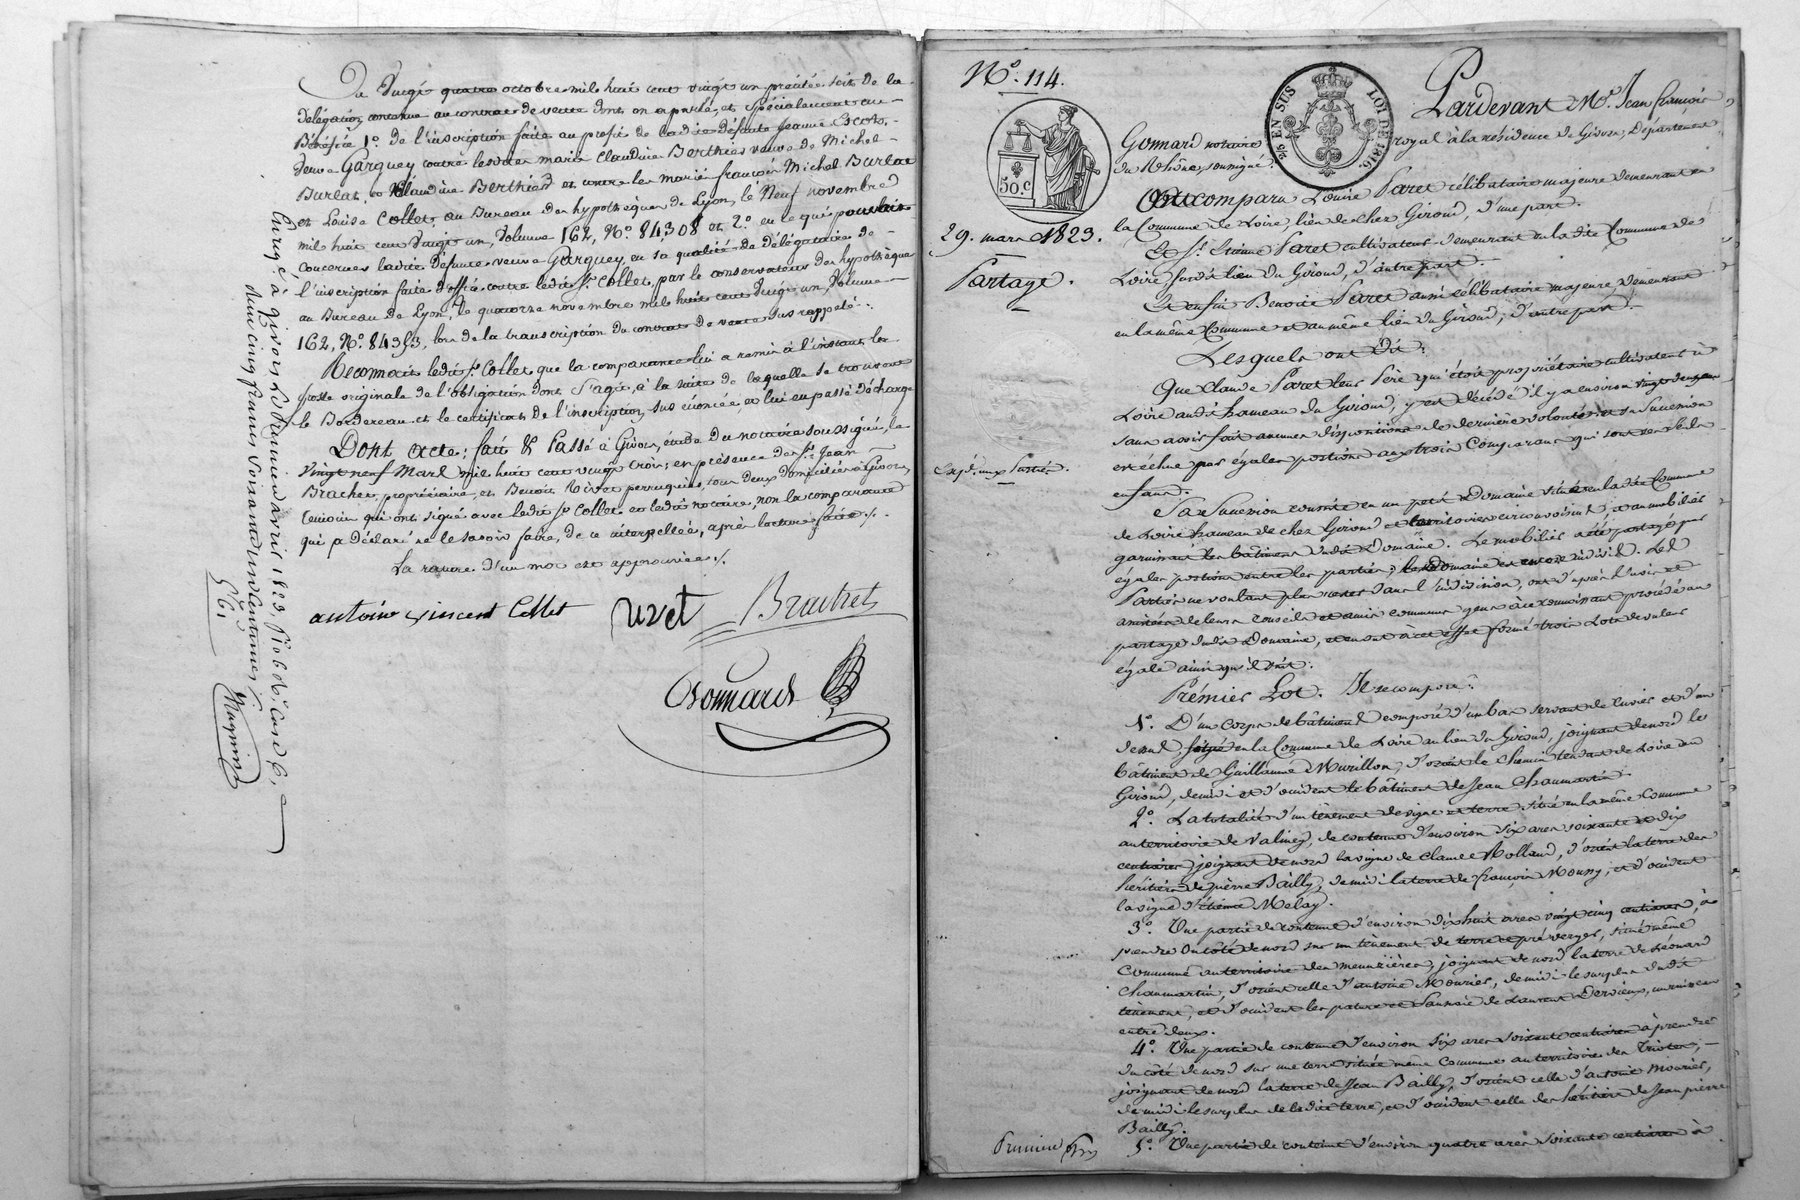 Du Vingt quatre octobre mil huit cent vingt un précité, soit de la
délégation contenue au contrat de vente dont on a parlé, et spécialement au
Bénéfice 1º. de l'inscription faite au profit de ladite défunte Jeanne
veuve Garguey contre lesdits mariés Claudine Berthier veuve de Michel
Burlat, Claudine Berthier et contre les mariés françois Michel Burlat
et Louise Collet au Bureau des hypothèques de Lyon, le Neuf novembre
mil huit cent vingt un, Volume 162, Nº. 84308 et 2º. en ce qui pouvait
concerner ladite défunte veuve Garguey, en sa qualité de délégataire de
l'inscription faite d'office contre ledit Sr. Collet, par le conservateur des hypothèques
au Bureau de Lyon, le quatorze novembre mil huit cent vingt un, Volume
162, Nº. 84353, lors de la transcription du contrat de vente sus rappelé.
Reconnait ledit Sr. Collet que la comparante lui a remis à l'instant la
grosse originale de l'obligation dont s'agit, à la suite de laquelle se trouvent
le Bordereau et le certificat de l'inscription sus énoncée, et lui en passe décharge
Dont acte; fait & Passé à Givors, étude du notaire soussigné, le
Vingt neuf Mars mil huit cent vingt trois; en présence des Srs. Jean
Brachet, propriétaire, et Benoit Rivet perruquier, tous deux domiciliés à Givors,
témoins qui ont signé avec ledit Sr. Collet et ledit notaire, non la comparante
qui a déclaré ne le savoir faire, de ce interpellée, après lecture faite ./.
La rature d'un mot est approuvée ./.
antoine vincent Collet
rivet
Brachet
Gonnard
Enreg. à givors le premier avril 1823 fº. 60 Vº. Case 6,
reçu cinq francs cinquante centimes
Nº. 114.
29. mars 1823.
Partage.
50.c
2/5 EN SUS
LOI DE 1816.
Pardevant Me. Jean françois
Gonnard notaire royal à la résidence de Givors, Département
du Rhône, soussigné.
Ont comparu Louise Paret célibataire majeure demeurant en
la Commune de Loire, lieu de chez Giroud, d'une part.
Et Sr. Etienne Paret cultivateur demeurant en la dite Commune de
Loire susdit lieu du Giroud, d'autre part.
Et enfin Benoite Paret aussi célibataire majeure, demeurant
en la même Commune et au même lieu du Giroud, d'autre part.
Lesquels ont Dit:
Que Claude Paret leur Père qui étoit propriétaire cultivateur à
Loire audit hameau du Giroud, y est décédé il y a environ vingt deux ans
sans avoir fait aucunes dispositions de dernière volonté; et sa succession
est échue par égales portions aux trois Comparans qui sont ses seuls
enfans.
Expd. aux Parties.
Sa succession consiste en un petit Domaine situé en la dite Commune
de Loire hameau de chez Giroud et territoires circonvoisins, et au mobilier
garnissant les bâtimens dudit Domaine. Le mobilier a été partagé par
égales portions entre les parties; le Domaine est encore indivis. Les
Parties ne voulant plus rester dans l'indivision, ont d'après l'avis et
de leurs conseils et amis communs gens à ce connoissant procédé au
partage dudit Domaine, et en ont à cet effet formé trois Lots de valeur
égale ainsi qu'il suit:
Prémier Lot. Il se compose:
1º. D'un Corps de bâtiment composé d'un bas servant de cuvier et d'un
situé en la Commune de Loire au lieu du Giroud, joignant de nord le
bâtiment de Guillaume Murillon, d'orient le chemin tendant de Loire au
Giroud, de midi et d'occident le bâtiment de Jean Chaumartin.
2º. La totalité d'un tènement de vigne et terre situé en la même Commune
au territoire de Valiney, de contenue d'environ six ares soixante et dix
centiares, joignant de nord la vigne de Claude Rolland, d'orient la terre des
héritiers de pierre Bailly, de midi la terre de françois Mouny, et d'occident
la vigne d'étienne Melay.
3º. Une partie de contenue d'environ dix huit ares vingt cinq centiares, à
prendre du côté de nord sur un tènement de terre et pré verger, situé même
Commune au territoire des meunières, joignant de nord la terre de Léonard
Chaumartin, d'orient celle d'antoine Mourier, de midi le surplus dudit
tènement, et d'occident les pature et Saussaie de Laurent Dervieux, un ruisseau
entre deux.
4º. Une partie de contenue d'environ six ares soixante centiares à prendre
du côté de nord sur une terre située même Commune au territoire des
joignant de nord la terre de Jean Bailly, d'orient celle d'antoine mourier,
de midi le surplus de ladite terre, et d'occident celle des héritiers de Jean pierre
Bailly.
5º. Une partie de contenue d'environ quatre ares soixante centiares à